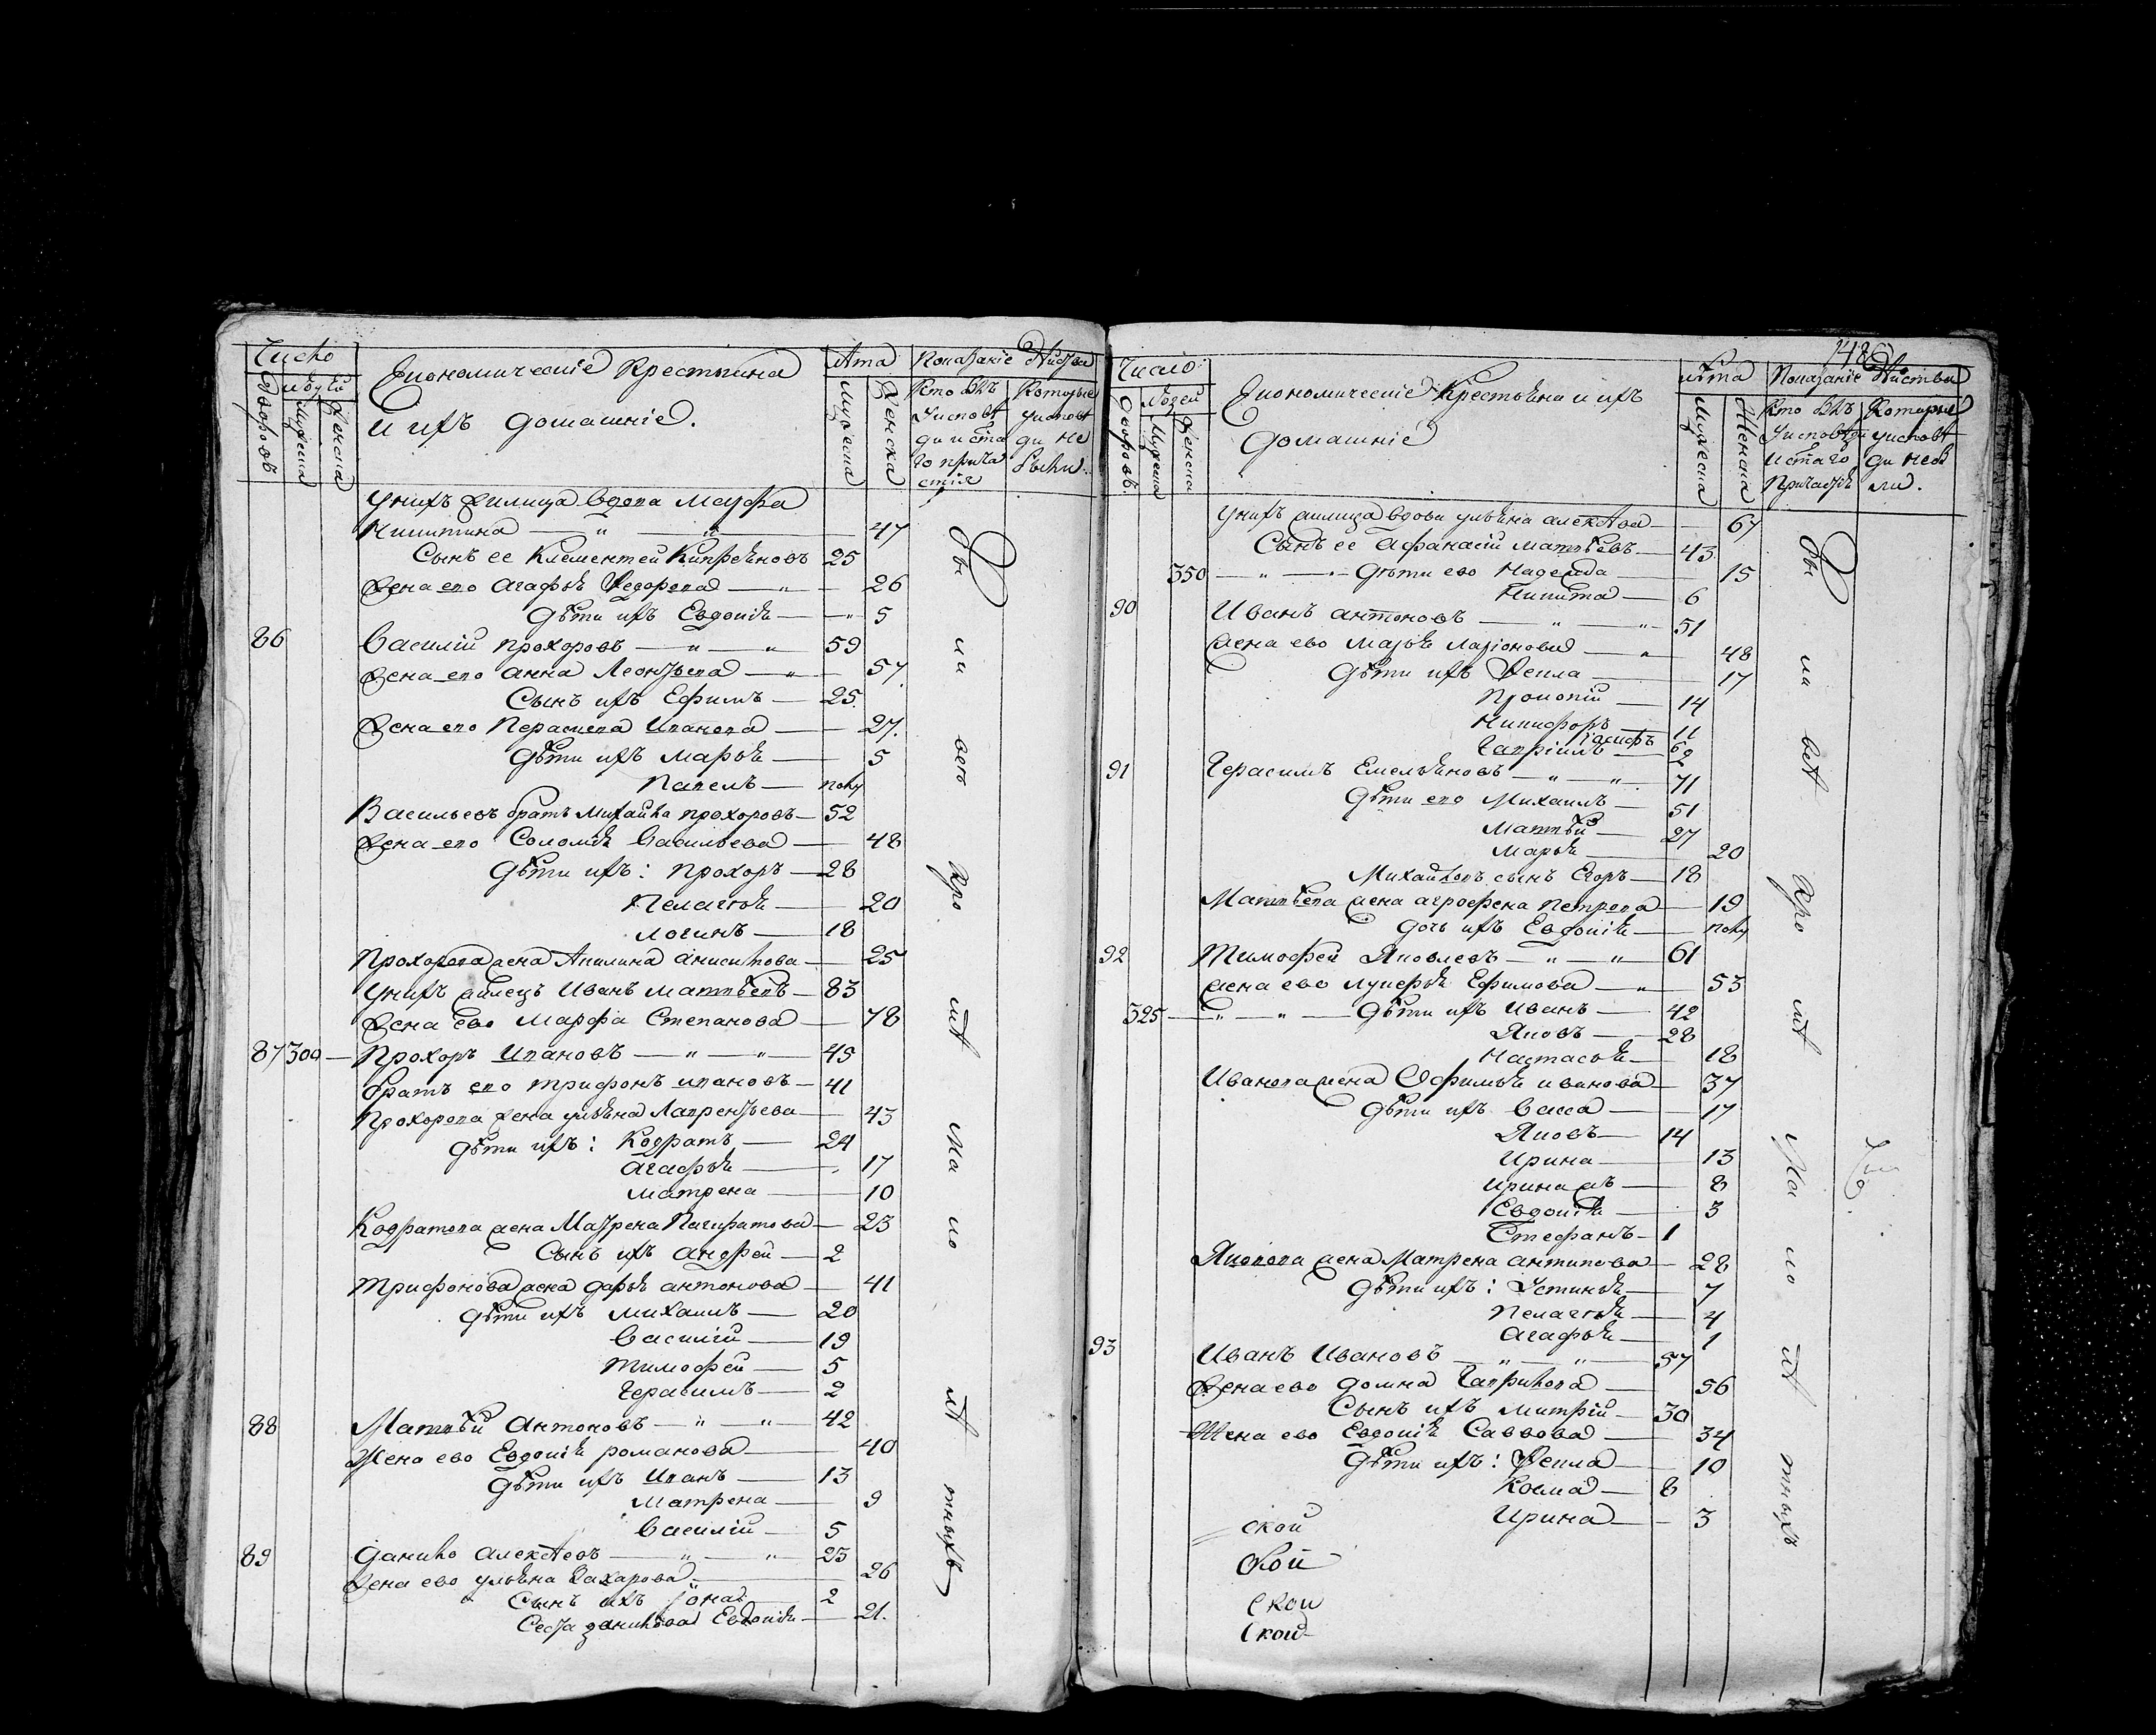 Число
людей
дворовъ
мужеска
женска
Економическіе Крестьяна
и ихъ домашніе.
лѣта
мужеска
женска
Показаніе Дѣйства
Кто былъ
у исповѣ
ди и свѧ
того прича
стія
Которые
у исповѣ
ди не
были.
у нихъ жилица вдова марфа
Никитина — " — " — 47
Сынъ ее Клементей Кипреѧновъ 25
жена ево Агафьѧ Федорова — " — 26
дѣти ихъ Евдокіѧ — " 5
86 Василій прохоровъ — " — " 59
жена ево анна Леонтьева — " — 57
Сынъ ихъ Ефимъ — 25.
жена ево Параскева Иванова — 27.
дѣти ихъ марьѧ — 5
Павелъ — полу
Васильевъ братъ михайла прохоровъ — 52
жена ево Соломіѧ Васильева — 48
дѣти ихъ: Прохоръ — 28
Пелагеѧ — 20
логинъ — 18
Прохорова жена Акилина анисимова — 25
у нихъ жилецъ Иванъ матвѣевъ — 83
жена ево Марфа Степанова — 78
87 300 — Прохоръ Ивановъ — " — " 45
братъ ево трифонъ ивановъ — 41
Прохорова жена ульѧна Лаврентьева — 43
дѣти ихъ: Кодратъ — 24
агафьѧ — 17
матрена — 10
Кодратова жена Матрена Панкратова — 23
Сынъ ихъ андрей — 2
трифонова жена дарьѧ антонова — 41
дѣти ихъ михаилъ — 20
василій — 19
тимофей — 5
герасимъ — 2
88 Матвѣй Антоновъ — " — " 42
Жена ево Евдокіѧ романова — 40
дѣти ихъ Иванъ — 13
матрена — 9
василій — 5
89 данило алексѣевъ — " — " 23
жена ево ульѧна Захарова — 26
Сынъ ихъ іона — 2
Сестра данилова Евдокіѧ — 21.
Всѣ
ми
Про
Ма
148
Число
людей
дворовъ
мужеска
женска
Економическіе Крестьѧна и ихъ
домашніе
лѣта
мужеска
женска
Показаніе дѣйства
Кто былъ
у исповѣди
и свѧтаго
Причастіѧ
Которые
у исповѣ
ди не бы
ли.
у нихъ жилица вдова ульѧна алексѣева — 67
Сынъ ее афанасій матвѣевъ — 43
350 — " — дѣти ево Надежда — 15
Никита — 6
90 Иванъ антоновъ — " — " 51
жена ево марьѧ ларіонова — " 48
дѣти ихъ Фекла — 17
Прокопій — 14
Никифоръ — 11
гавріилъ
91 Герасимъ Емельѧновъ — " — " 71
дѣти ево Михаилъ — 51
матвѣй — 27
марьѧ — 20
Михайловъ сынъ Егоръ — 18
Матвѣева жена агрофена петрова — 19
дочь ихъ Евдокіѧ — полу
92 Тимофей Яковлевъ — " — " 61
жена ево лукерьѧ Ефимова — " 53
325 — " — " — дѣти ихъ Иванъ — 42
Яковъ — 28
Настасьѧ — 18
Иванова жена Офимьѧ иванова — 37
дѣти ихъ васса — 17
Яковъ — 14
Ирина — 13
Ирина жъ — 8
Евдокіѧ — 3
Стефанъ — 1
Яковова жена Матрена антипова — 28
дѣти ихъ: Устиньѧ — 7
Пелагеѧ — 4
агафьѧ — 1
93 Иванъ Ивановъ — " — 57
жена ево домна Гаврилова — 56
Сынъ ихъ митрій — 30
Жена ево Евдокіѧ Саввова — 34
дѣти ихъ: Фекла — 10
Косма — 8
Ирина — 3
ской
ской
ской
ской